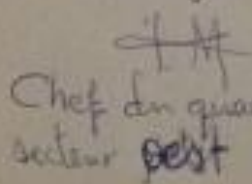 Chef du qua
secteur Oest